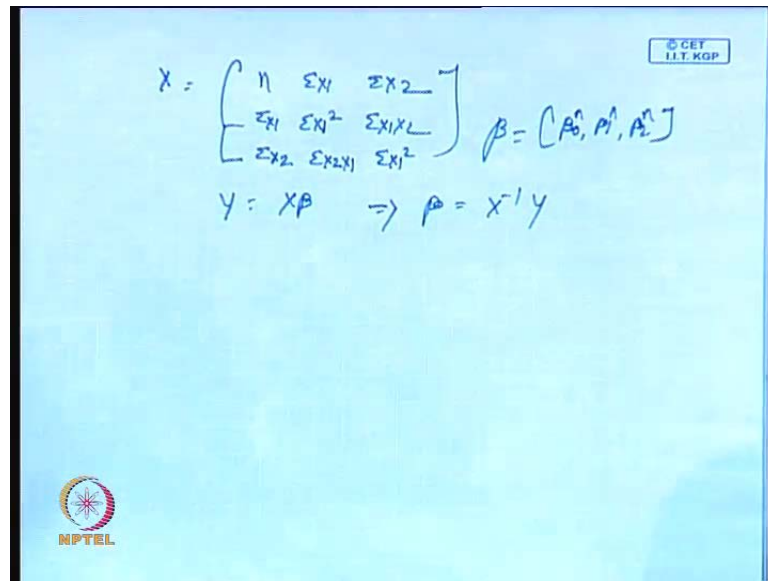 © CET
I.I.T. KGP
X = [ n Σx1 Σx2
Σx1 Σx1² Σx1x2
Σx2 Σx2x1 Σx1² ] β = [β0^, β1^, β2^]
Y = Xβ => β = X⁻¹ Y
NPTEL